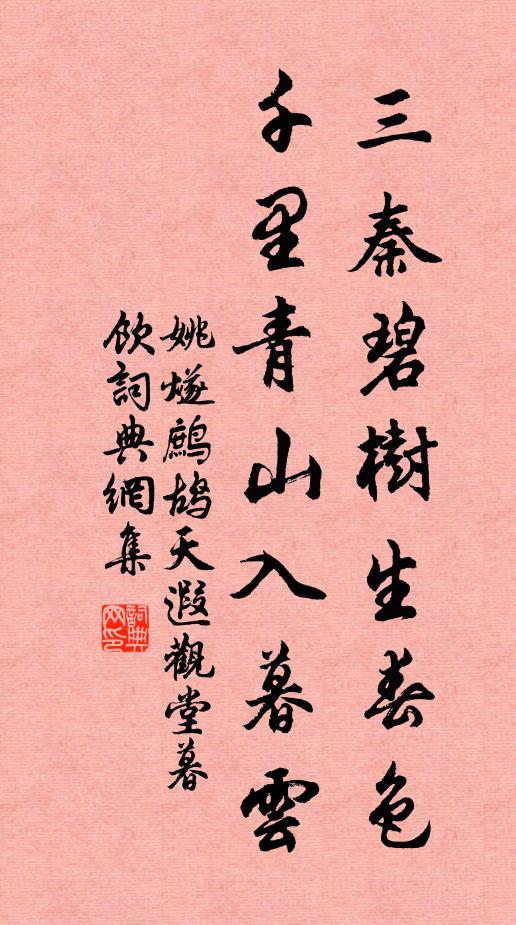 三秦碧樹生春色
千里青山入暮雲
姚燧鷓鴣天遐觀堂暮
飲詞典網集
詞典网印